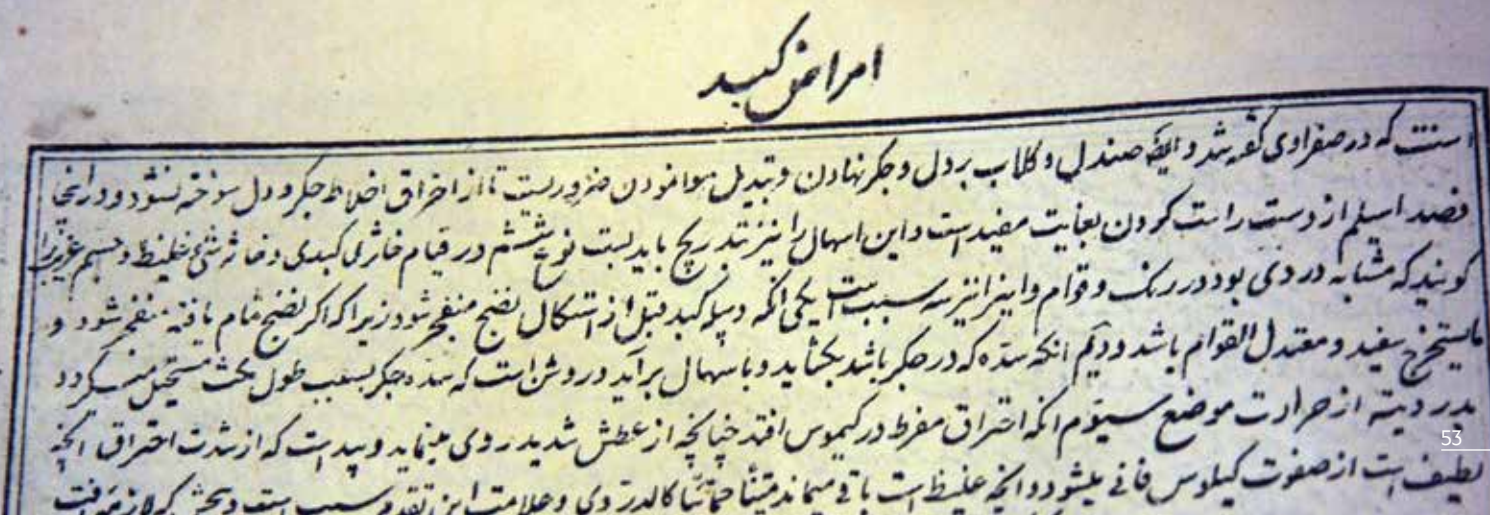 امراض کبد
است که در صفراوی گفته شد و ایضا صندل و گلاب بر دل و جگر نهادن و تبدیل هوا نمودن ضروریست تا از احتراق اخلاط جگر و دل سوخته نشود و در اینجا
فصد اسیلم از دست راست کردن بغایت مفید است و این اسهال را نیز بتدریج باید بست نوع ششم در قیام خاثر کبدی و خاثر شئ غلیظ و جسم غریب را
کویند که مشابه دردی بود در رنگ و قوام و اینرا نیز سه سبب است یکی آنکه دبیله کبد قبل از استکمال نضج منفجر شود زیرا که اکر نضج تمام یافته منفجر شود و
مایستخرج سفید و معتدل القوام باشد و دیم آنکه سده که در جکر باشد بکشاید و باسهال برآید و روشن است که سده جکر بسبب طول مکث مستحیل میکردد
بدردیة از حرارت موضع سیوم آنکه احتراق مفرط در کیموس افتد چنانچه از عطش شدید روی مینماید و پید است که از شدت احتراق آنچه
لطیف است از صفوت کیلوس فانی میشود و آنچه غلیظ است باقی میماند منتنا کالدردی و علامت این تقدم سبب است و
53